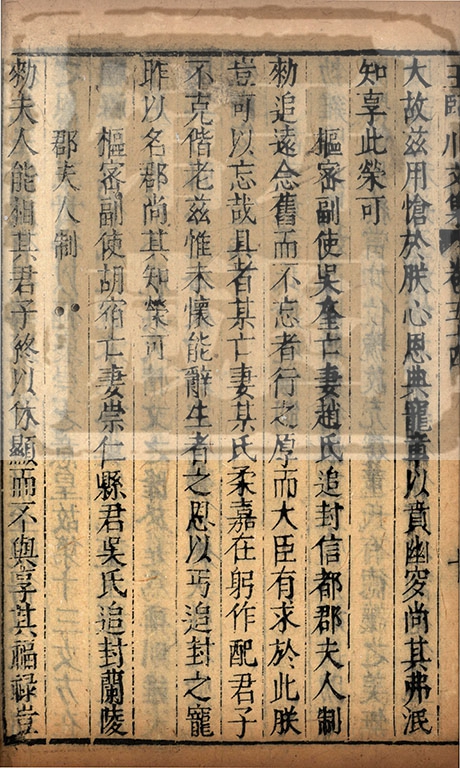 王臨川文集 卷五十四
大故兹用愴於朕心恩典寵章以賁幽窀尚其弗泯
知享此榮可
樞密副使吳奎亡妻趙氏追封信都郡夫人制
勑追遠念舊而不忘者行之厚而大臣有求於此朕
豈可以忘哉具者某亡妻某氏柔嘉在躬作配君子
不克偕老兹惟永懷能辭生者之恩以丐追封之寵
昨以名郡尚其知榮可
樞密副使胡宿亡妻崇仁縣君吳氏追封蘭陵
郡夫人制
勑夫人能相其君子終以休顯而不與享其福祿豈